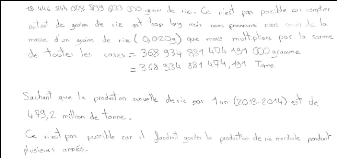 18 446 744 073 709 551 000 grain de riz. Ce n'est pas possible car
de riz est trop long mais nous pouvons
masse d'un grain de riz (0,020g) que nous multiplions par la somme
de toutes les cases = 368 934 881 474 191 000 gramme
= 368 934 881 474,191 Tone
Sachant que la production annuelle de riz par 1 an (2013-2014) est de
479,2 million de tonne.
Ce n'est pas possible car il faudrait toute la production de riz mondiale pendant
plusieurs années.